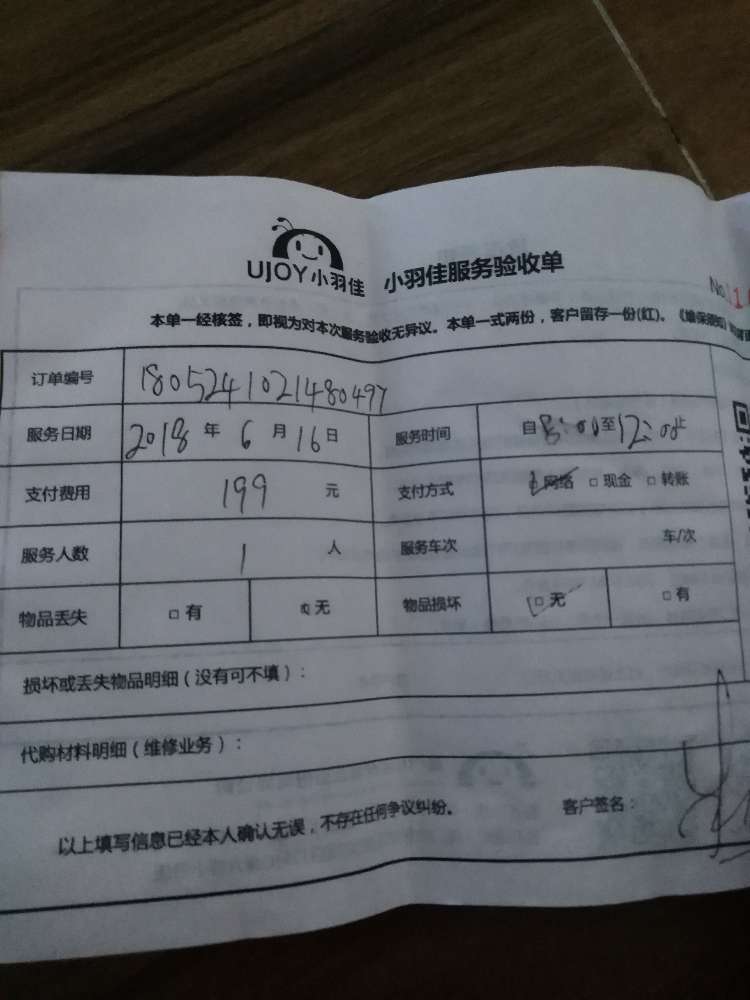 UJOY小羽佳 小羽佳服务验收单
No. 1
本单一经核签，即视为对本次服务验收无异议。本单一式两份，客户留存一份(红)。《维保须知》
订单编号 1805241021480497
服务日期 2018 年 6 月 16 日 服务时间 自 8:00 至 12:00止
支付费用 199 元 支付方式 网络 □ 现金 □ 转账
服务人数 1 人 服务车次 车/次
物品丢失 □ 有 □ 无 物品损坏 □ 无 □ 有
损坏或丢失物品明细（没有可不填）：
代购材料明细（维修业务）：
以上填写信息已经本人确认无误，不存在任何争议纠纷。 客户签名：